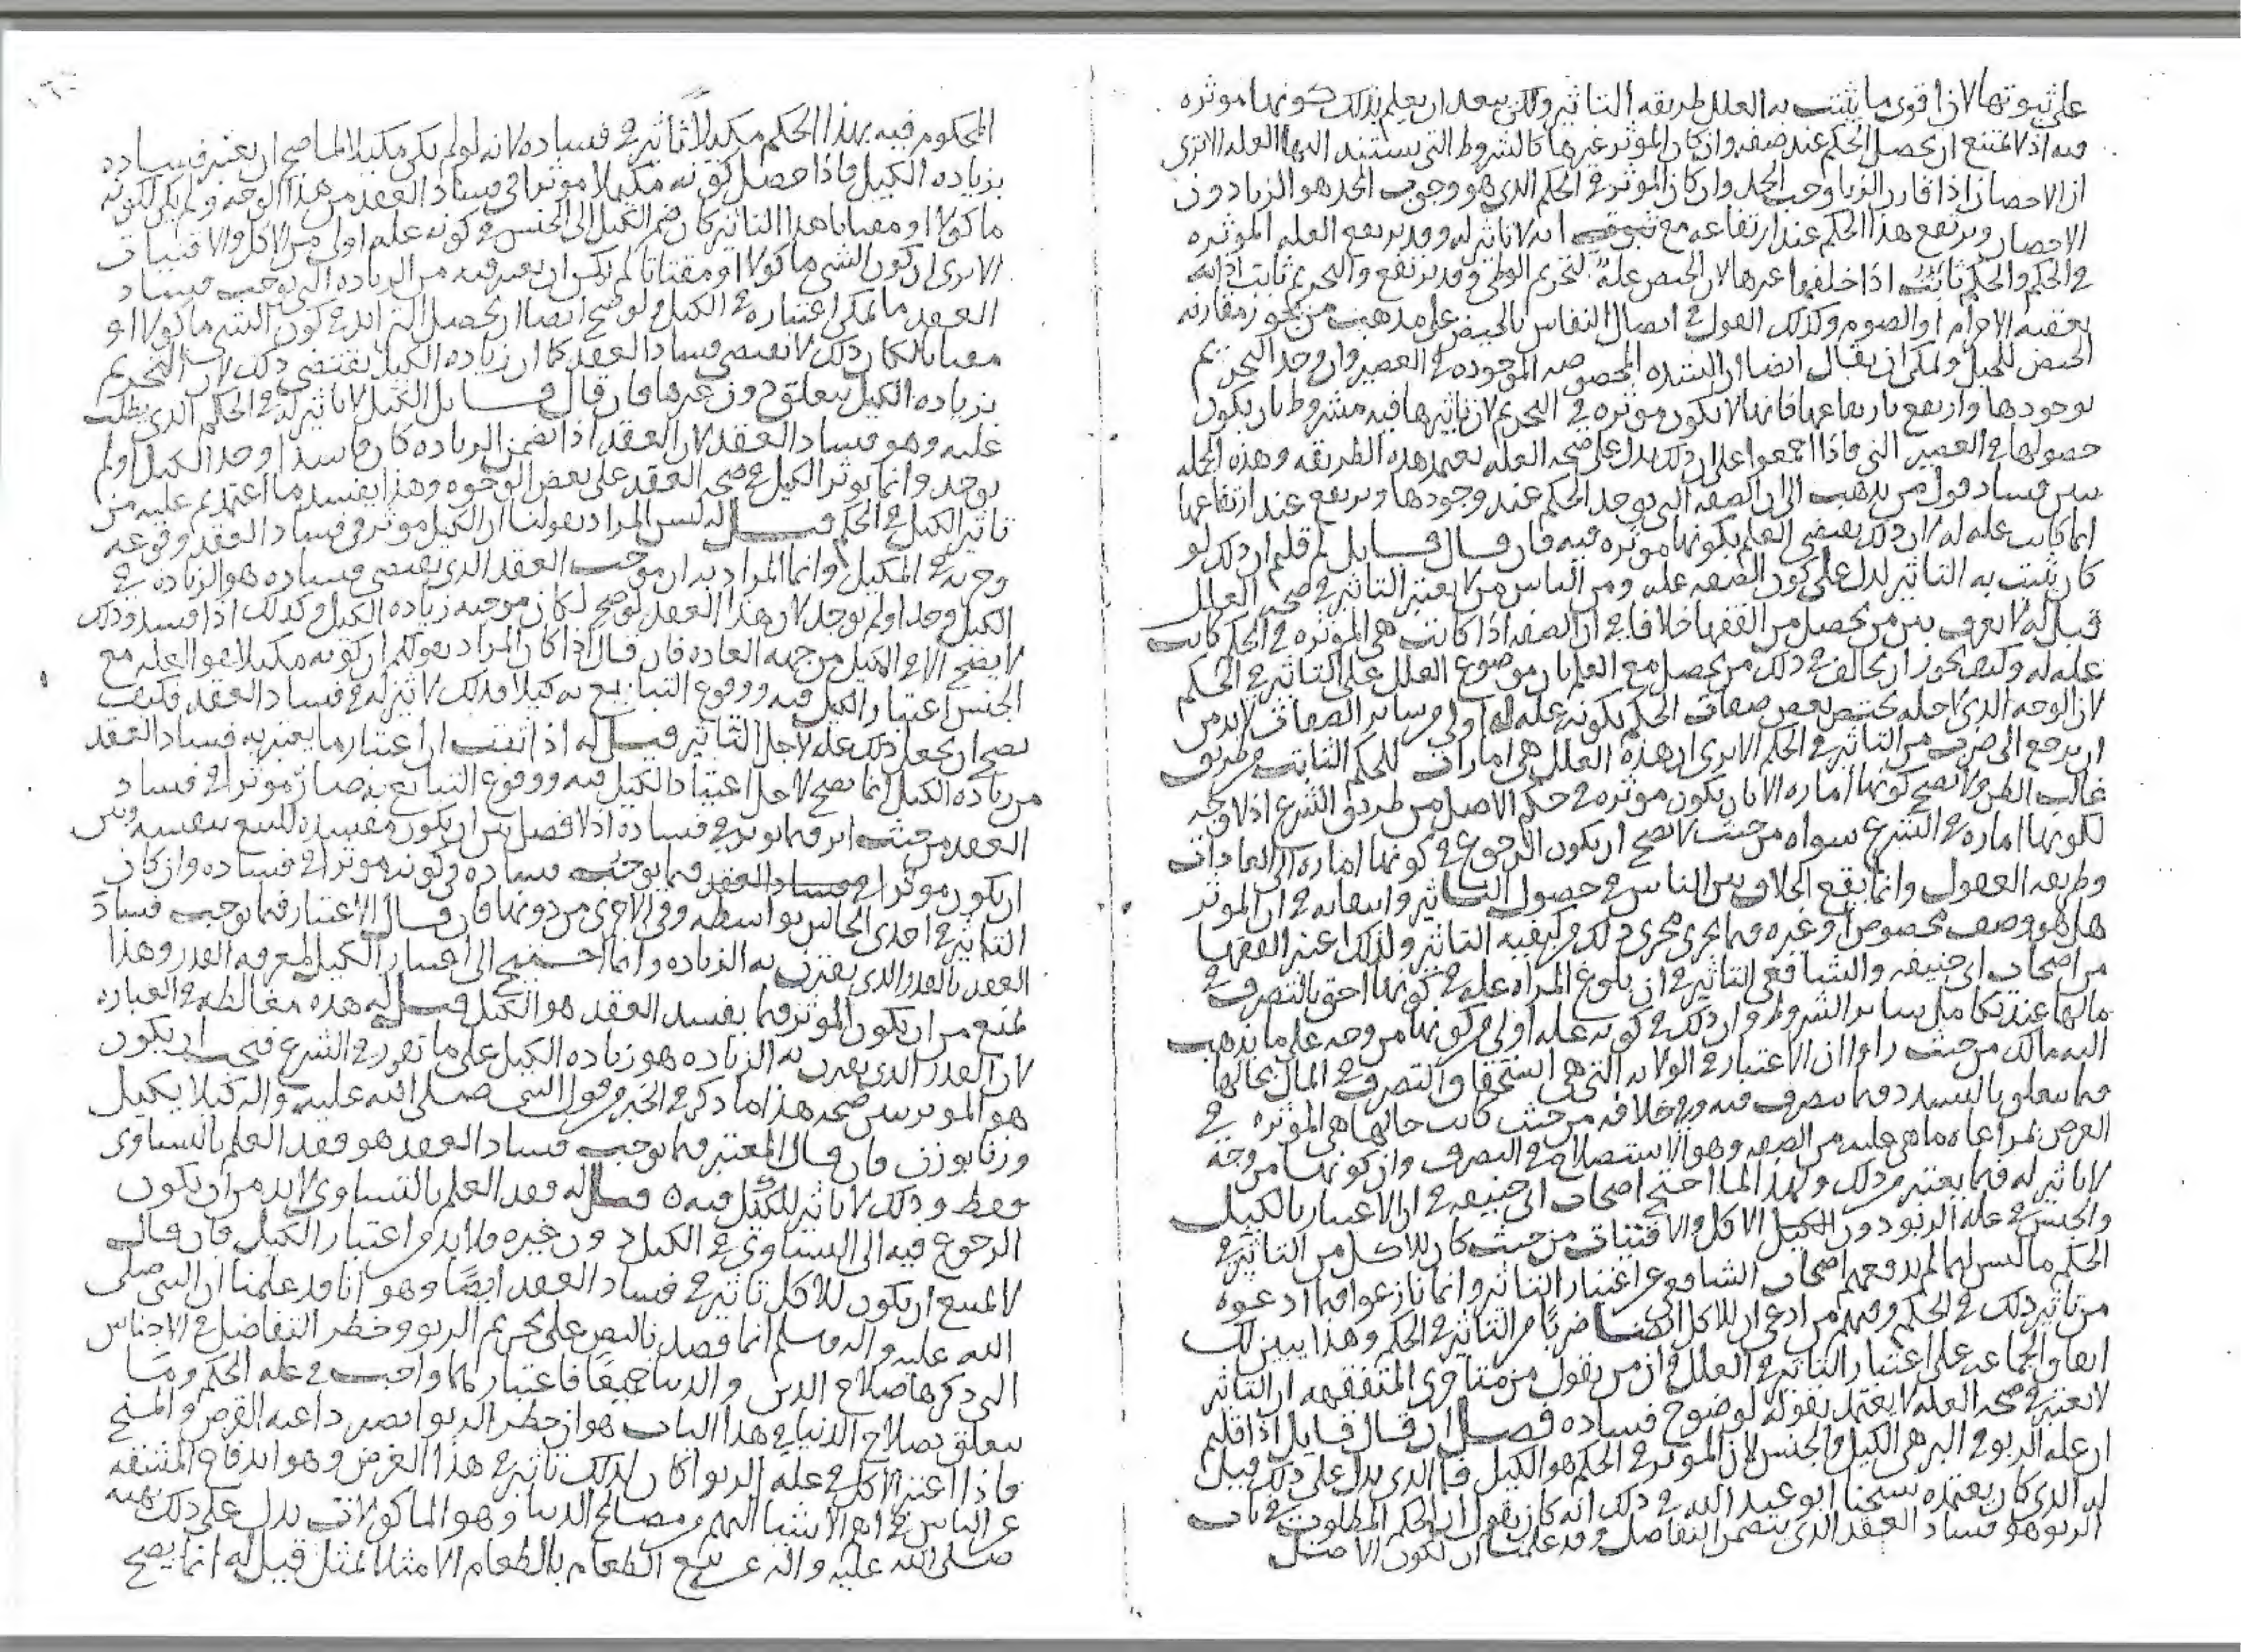 على ثبوتها لان اقوى ما يثبت به العلل طريقه التاثير ولكن بعد ان يعلم بذلك كونها موثره
فيه اذ لا يمتنع ان يحصل الحكم عند صفه وان كان الموثر غيرها كالشروط التي يستند اليها العله الا ترى
ان الاحصان اذا قارن الزنا وجب الحد وان كان الموثر في الحكم الذي هو وجوب الحد هو الزنا دون
الاحصان ويرتفع هذا الحكم عند ارتفاعه مع انه لا تاثير له وقد يرتفع العله الموثره
في الحكم والحكم ثابت اذا خلفها غيرها لان الحيض عله لتحريم الوطى وقد يرتفع والتحريم ثابت اذا
يعقبه الاحرام او الصوم وكذلك القول في اتصال النفاس بالحيض على مذهب من يجوز مقارنه
الحيض للحبل ويمكن ان يقال ايضا ان الشده المخصوصه الموجوده في العصير وان وجد التحريم
بوجودها وارتفع بارتفاعها فانها لا يكون موثره في التحريم لان تاثيرها فيه مشروط بان يكون
حصولها في العصير الني فاذا اجمعوا على ان ذلك يدل على صحه العله بهذه الطريقه وهذه الجمله
يبين فساد قول من يذهب الى ان الصفه التي يوجد الحكم عند وجودها ويرتفع عند ارتفاعها
انما كانت عله له لان ذلك يقتضي العلم بكونها موثره فيه فان قال قايل لم قلتم ان ذلك لو
كان يثبت به التاثير لدل على كون الصفه عله ومن الناس من لا يعتبر التاثير في صحه العلل
قيل له لا نعرف بين من يحصل من الفقها خلافا في ان الصفه اذا كانت هي الموثره في الحكم كانت
عله له وكيف يجوز ان يخالف في ذلك من يحصل مع العلم بان موضوع العلل على التاثير في الحكم
لان الوجه الذي لاجله يختص بعض صفات الحكم بكونه عله له اولى من ساير الصفات لا بد من
ان يرجع الى ضرب من التاثير في الحكم الا ترى ان هذه العلل هي امارات للحكم الثابت من طريق
غالب الظن ولا يصح كونها اماره الا بان يكون موثره في حكم الاصل من طريق الشرع اذ لا وجه
لكونها اماره في الشرع سواه من حيث لا يصح ان يكون الرجوع في كونها اماره الى العادات
وطريقه العقول وانما يقع الخلاف بين الناس في حصول التاثير واثباته في ان الموثر
هل هو وصف مخصوص او غيره فيما يجري مجرى ذلك من كيفيه التاثير ولذلك اعتبر الفقها
من اصحاب ابي حنيفه والشافعي التاثير في ان بلوغ المراه عله في كونها احق بالتصرف في
مالها عند تكامل ساير الشروط وان ذلك في كونه عله اولى من كونها مزوجه على ما يذهب
اليه مالك من حيث راوا ان الاعتبار في الولايه التي هي استحقاق التصرف في المال بحالها
فيما يتعلق بالتسدد فيما يتصرف فيه وفي خلافه من حيث كانت حالها هي الموثره في
الغرض بمراعاه ما هي عليه من الصفه وهو الاستصلاح في التصرف وان كونها مزوجه
لا تاثير له فيما يعتبر من ذلك ولهذا لما احتج اصحاب ابي حنيفه في ان الاعتبار بالكيل
والجنس في عله الربو دون الاكل والاقتيات من حيث كان للكيل من التاثير في
الحكم ما ليس لهما لم يدفعهم اصحاب الشافعي عن اعتبار التاثير وانما نازعوا فيما ادعوه
من تاثير ذلك في الحكم وفيهم من ادعى ان للاكل ايضا ضربا من التاثير في الحكم وهذا يبين لك
اتفاق الجماعه على اعتبار التاثير في العلل وان من يقول من متاخري المتفقهه ان التاثير
لا يعتبر في صحه العله لا يعتد بقوله لوضوح فساده فصل ان قال قايل اذا قلتم
ان عله الربو في البر هي الكيل والجنس لان الموثر في الحكم هو الكيل فما الذي يدل على ذلك قيل
له الذي كان يعتمده شيخنا ابو عبد الله في ذلك انه كان يقول ان الحكم المطلوب في باب
الربو هو فساد العقد الذي يتضمن التفاضل وقد علمنا ان لكون الاصل
المحكوم فيه بهذا الحكم مكيلا تاثيرا في فساده لانه لو لم يكن مكيلا لما صح ان يعتبر فساده
بزياده الكيل فاذا حصل كونه مكيلا موثرا في فساد العقد من هذا الوجه ولم يكن لكونه
ماكولا او مقتاتا هذا التاثير كان ضم الكيل الى الجنس في كونه عله اولى من الاكل والاقتيات
الا ترى ان كون الشي ماكولا او مقتاتا لم يكن ان يعتبر فيه من الزياده التي توجب فساد
العقد ما يمكن اعتباره في الكيل ولو صح ايضا ان يحصل التزايد في كون الشي ماكولا او
مقتاتا لكان ذلك لا يقتضي فساد العقد كما ان زياده الكيل يقتضي ذلك لان التحريم
بزياده الكيل يتعلق دون غيرها فان قال قايل الكيل لا تاثير له في الحكم الذي يطلب
عليه وهو فساد العقد لان العقد اذا تضمن الزياده كان فاسدا وجد الكيل او لم
يوجد وانما يوثر الكيل في صحه العقد على بعض الوجوه وهذا يفسد ما اعتمدتم عليه من
تاثير الكيل في الحكم قيل له ليس المراد بقولنا ان الكيل موثر في فساد العقد وقوعه
وجريه في المكيل وانما المراد به ان موجب العقد الذي يقتضي فساده هو الزياده في
الكيل وجد او لم يوجد لان هذا العقد لو صح لكان موجبه زياده الكيل وكذلك اذا فسد وذلك
لا يصح الا في المكيل من جهه العاده فان قال اذا كان المراد بقولكم ان كونه مكيلا هو العله مع
الجنس اعتبار الكيل فيه ووقوع التبايع به كيلا فذلك لا اثر له في فساد العقد فكيف
يصح ان يجعل ذلك عله لاجل التاثير قيل له اذا ثبت ان اعتبار ما يعتبر به فساد العقد
من زياده الكيل انما يصح لاجل اعتياد الكيل فيه ووقوع التبايع به صار موثرا في فساد
العقد من حيث اثر فيما يوثر في فساده اذ لا فصل بين ان يكون مفسدا للبيع بنفسه وبين
ان يكون موثرا فيما يوجب فساده في كونه موثرا في فساده وان كان
التاثير في احدى الحالين بواسطه وفي الاخرى من دونها فان قال الاعتبار فيما يوجب فساد
العقد بالقدر الذي يقترن به الزياده وانما احتيج الى اعتبار الكيل لمعرفه القدر وهذا
يمنع من ان يكون الموثر فيما يفسد العقد هو الكيل قيل له هذه مغالطه في العباره
لان القدر الذي يقترن به الزياده هو زياده الكيل على ما تقرر في الشرع فيجب ان يكون
هو الموثر يبين صحه هذا ما ذكر في الخبر من قول النبي صلى الله عليه واله كيلا بكيل
وزنا بوزن فان قال المعتبر فيما يوجب فساد العقد هو فقد العلم بالتساوي
فقط وذلك لا تاثير للكيل فيه ه قيل له فقد العلم بالتساوي لا بد من ان يكون
الرجوع فيه الى التساوي في الكيل دون غيره فلا بد من اعتبار الكيل فان قال
لا يمتنع ان يكون للاكل تاثير في فساد العقد ايضا وهو انا قد علمنا ان النبي صلى
الله عليه واله وسلم انما قصد بالنص على تحريم الربو وحظر التفاضل في الاجناس
التي ذكرها صلاح الدين والدنيا جميعا فاعتبارهما واجب في عله الحكم وما
يتعلق بصلاح الدنيا في هذا الباب هو ان حظر الربوا يصير داعيه القرض والمنح
فاذا اعتبر الاكل في عله الربوا كان لذلك تاثير في هذا الغرض وهو اندفاع المشقه
عن الناس في اهم الاشيا اليهم من مصالح الدنيا وهو الماكولات يدل على ذلك نهيه
صلى الله عليه واله عن بيع الطعام بالطعام الا مثلا بمثل قيل له انما يصح